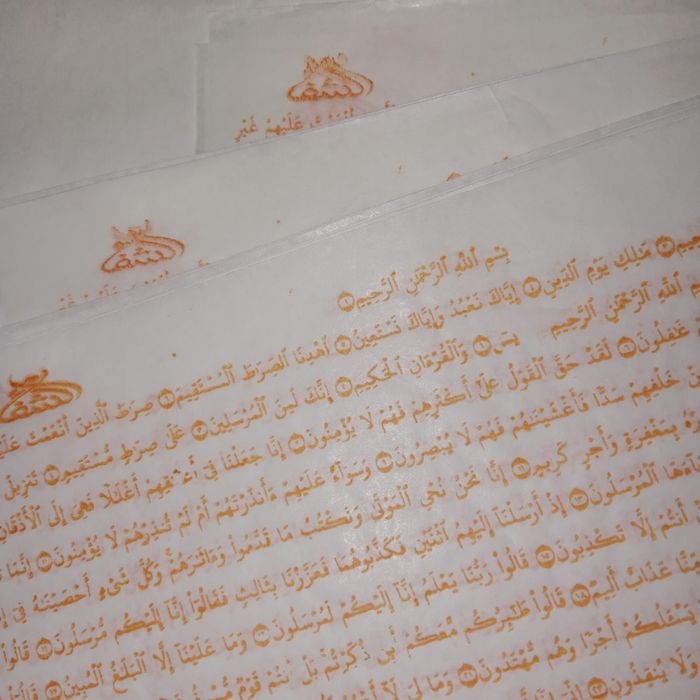 عَلَيْهِمْ غَيْرِ
بِسْمِ ٱللَّهِ ٱلرَّحْمَٰنِ ٱلرَّحِيمِ ١
مَٰلِكِ يَوْمِ ٱلدِّينِ ٤ إِيَّاكَ نَعْبُدُ وَإِيَّاكَ نَسْتَعِينُ ٥ ٱهْدِنَا ٱلصِّرَٰطَ ٱلْمُسْتَقِيمَ ٦ صِرَٰطَ ٱلَّذِينَ أَنْعَمْتَ
ٱللَّهِ ٱلرَّحْمَٰنِ ٱلرَّحِيمِ يسٓ ١ وَٱلْقُرْءَانِ ٱلْحَكِيمِ ٢ إِنَّكَ لَمِنَ ٱلْمُرْسَلِينَ ٣ عَلَىٰ صِرَٰطٍ مُّسْتَقِيمٍ ٤ تَنزِيلَ
غَٰفِلُونَ ٦ لَقَدْ حَقَّ ٱلْقَوْلُ عَلَىٰٓ أَكْثَرِهِمْ فَهُمْ لَا يُؤْمِنُونَ ٧ إِنَّا جَعَلْنَا فِىٓ أَعْنَٰقِهِمْ أَغْلَٰلًا فَهِىَ إِلَى ٱلْأَذْقَانِ
خَلْفِهِمْ سَدًّا فَأَغْشَيْنَٰهُمْ فَهُمْ لَا يُبْصِرُونَ ٩ وَسَوَآءٌ عَلَيْهِمْ ءَأَنذَرْتَهُمْ أَمْ لَمْ تُنذِرْهُمْ لَا يُؤْمِنُونَ ١٠ إِنَّمَا
بِمَغْفِرَةٍ وَأَجْرٍ كَرِيمٍ ١١ إِنَّا نَحْنُ نُحْىِ ٱلْمَوْتَىٰ وَنَكْتُبُ مَا قَدَّمُوا۟ وَءَاثَٰرَهُمْ وَكُلَّ شَىْءٍ أَحْصَيْنَٰهُ فِىٓ
ٱلْمُرْسَلُونَ ١٣ إِذْ أَرْسَلْنَآ إِلَيْهِمُ ٱثْنَيْنِ فَكَذَّبُوهُمَا فَعَزَّزْنَا بِثَالِثٍ فَقَالُوٓا۟ إِنَّآ إِلَيْكُم مُّرْسَلُونَ ١٤ قَالُوا۟
أَنتُمْ إِلَّا تَكْذِبُونَ ١٥ قَالُوا۟ رَبُّنَا يَعْلَمُ إِنَّآ إِلَيْكُمْ لَمُرْسَلُونَ ١٦ وَمَا عَلَيْنَآ إِلَّا ٱلْبَلَٰغُ ٱلْمُبِينُ ١٧
عَذَابٌ أَلِيمٌ ١٨ قَالُوا۟ طَٰٓئِرُكُم مَّعَكُمْ أَئِن ذُكِّرْتُم بَلْ أَنتُمْ قَوْمٌ
يَسْـَٔلُكُمْ أَجْرًا وَهُم مُّهْتَدُونَ ٢١ وَمَا لِىَ لَآ
وَلَا يُنقِذُونِ